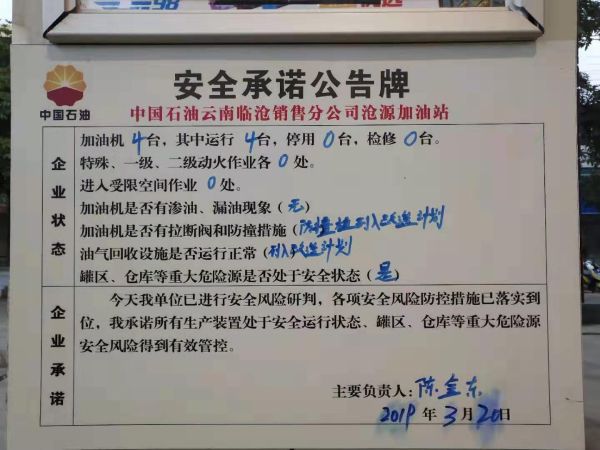 中国石油
安全承诺公告牌
中国石油云南临沧销售分公司沧源加油站
企业状态
加油机 4台，其中运行 4台，停用 0台，检修 0台。
特殊、一级、二级动火作业各 0处。
进入受限空间作业 0处。
加油机是否有渗油、漏油现象（无）
加油机是否有拉断阀和防撞措施（防撞栏列入改造计划
油气回收设施是否运行正常（列入改造计划
罐区、仓库等重大危险源是否处于安全状态（是）
企业承诺
今天我单位已进行安全风险研判，各项安全风险防控措施已落实到
位，我承诺所有生产装置处于安全运行状态、罐区、仓库等重大危险源
安全风险得到有效管控。
主要负责人：陈金东
2019 年 3月 20日